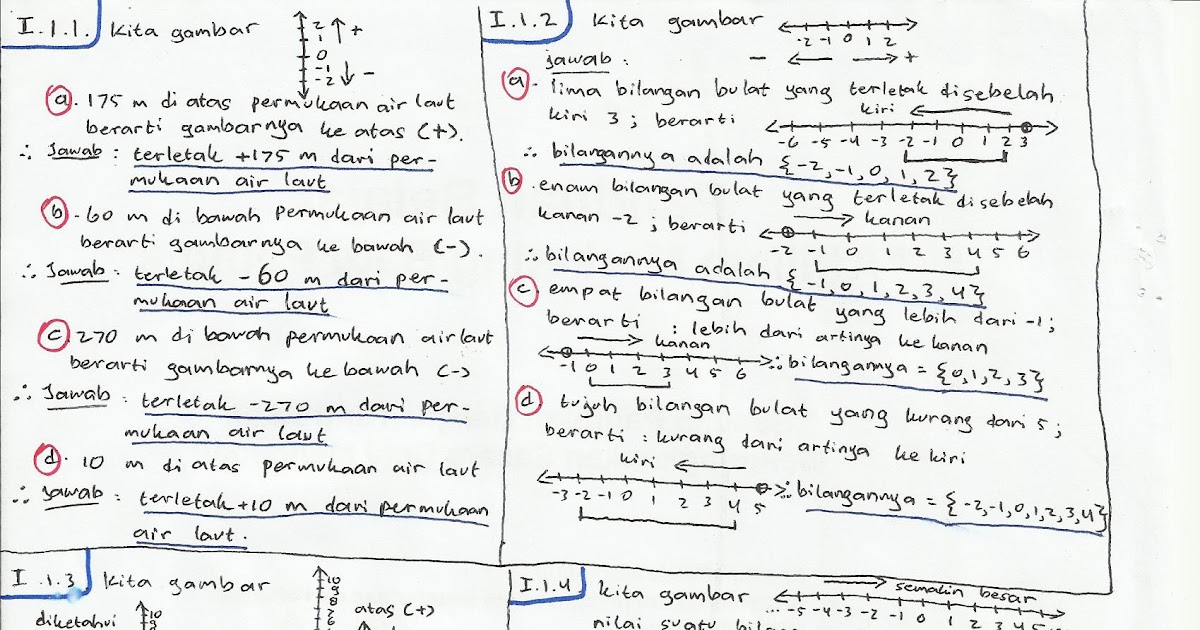 I.1.1. Kita gambar
2
1
0
-1
-2
↑ +
↓ -
a. 175 m di atas permukaan air laut
berarti gambarnya ke atas (+).
∴ Jawab : terletak +175 m dari per-
mukaan air laut
b. 60 m di bawah permukaan air laut
berarti gambarnya ke bawah (-).
∴ Jawab : terletak -60 m dari per-
mukaan air laut
c. 270 m di bawah permukaan air laut
berarti gambarnya ke bawah (-)
∴ Jawab : terletak -270 m dari per-
mukaan air laut
d. 10 m di atas permukaan air laut
∴ Jawab : terletak +10 m dari permukaan
air laut.
I.1.2 Kita gambar
-2 -1 0 1 2
jawab : - ← → +
a. lima bilangan bulat yang terletak disebelah
kiri 3 ; berarti kiri
-6 -5 -4 -3 -2 -1 0 1 2 3
∴ bilangannya adalah {-2, -1, 0, 1, 2}
b. enam bilangan bulat yang terletak disebelah
kanan -2 ; berarti kanan
-2 -1 0 1 2 3 4 5 6
∴ bilangannya adalah {-1, 0, 1, 2, 3, 4}
c. empat bilangan bulat yang lebih dari -1 ;
berarti : lebih dari artinya ke kanan
kanan
-1 0 1 2 3 4 5 6 ∴ bilangannya = {0, 1, 2, 3}
d. tujuh bilangan bulat yang kurang dari 5 ;
berarti : kurang dari artinya ke kiri
kiri
-3 -2 -1 0 1 2 3 4 5 ∴ bilangannya = {-2, -1, 0, 1, 2, 3, 4}
I.1.3 Kita gambar
10
9
8
7
6
atas (+)
diketahui
10
9
I.1.4 Kita gambar semakin besar
... -5 -4 -3 -2 -1 0 1 2 3 4
nilai suatu